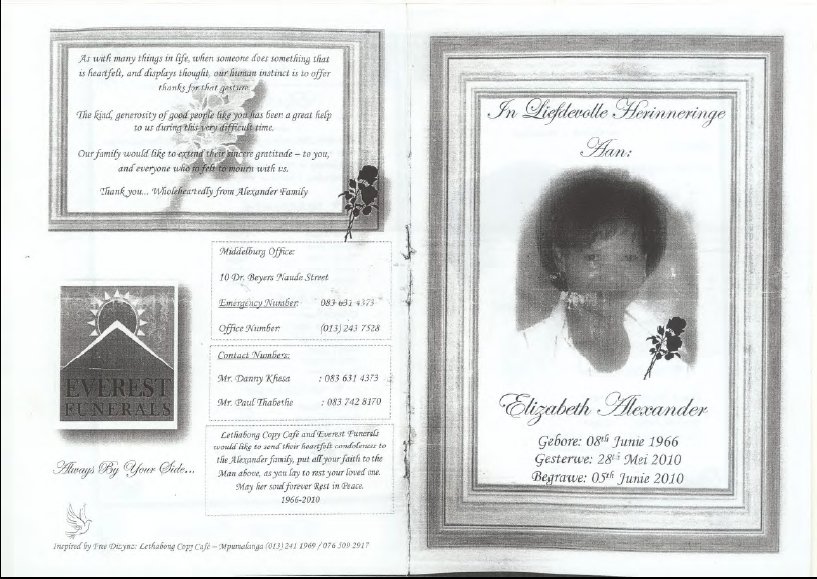 As with many things in life, when someone does something that
is heartfelt, and displays thought, our human instinct is to offer
thanks for that gesture.
The kind, generosity of good people like you has been a great help
to us during this very difficult time.
Our family would like to extend their sincere gratitude – to you,
and everyone who felt to mourn with us.
Thank you... Wholeheartedly from Alexander Family
Middelburg Office:
10 Dr. Beyers Naude Street
Emergency Number: 083 631 4373
Office Number: (013) 243 7528
Contact Numbers:
Mr. Danny Khesa : 083 631 4373
Mr. Paul Thabethe : 083 742 8170
EVEREST
FUNERALS
Always By Your Side...
Lethabong Copy Café and Everest Funerals
would like to send their heartfelt condolences to
the Alexander family, put all your faith to the
Man above, as you lay to rest your loved one.
May her soul forever Rest in Peace.
1966-2010
Inspired by Free Dizynz: Lethabong Copy Café – Mpumalanga (013) 241 1969 / 076 509 2917
In Liefdevolle Herinneringe
Aan:
Elizabeth Alexander
Gebore: 08th Junie 1966
Gesterwe: 28th Mei 2010
Begrawe: 05th Junie 2010